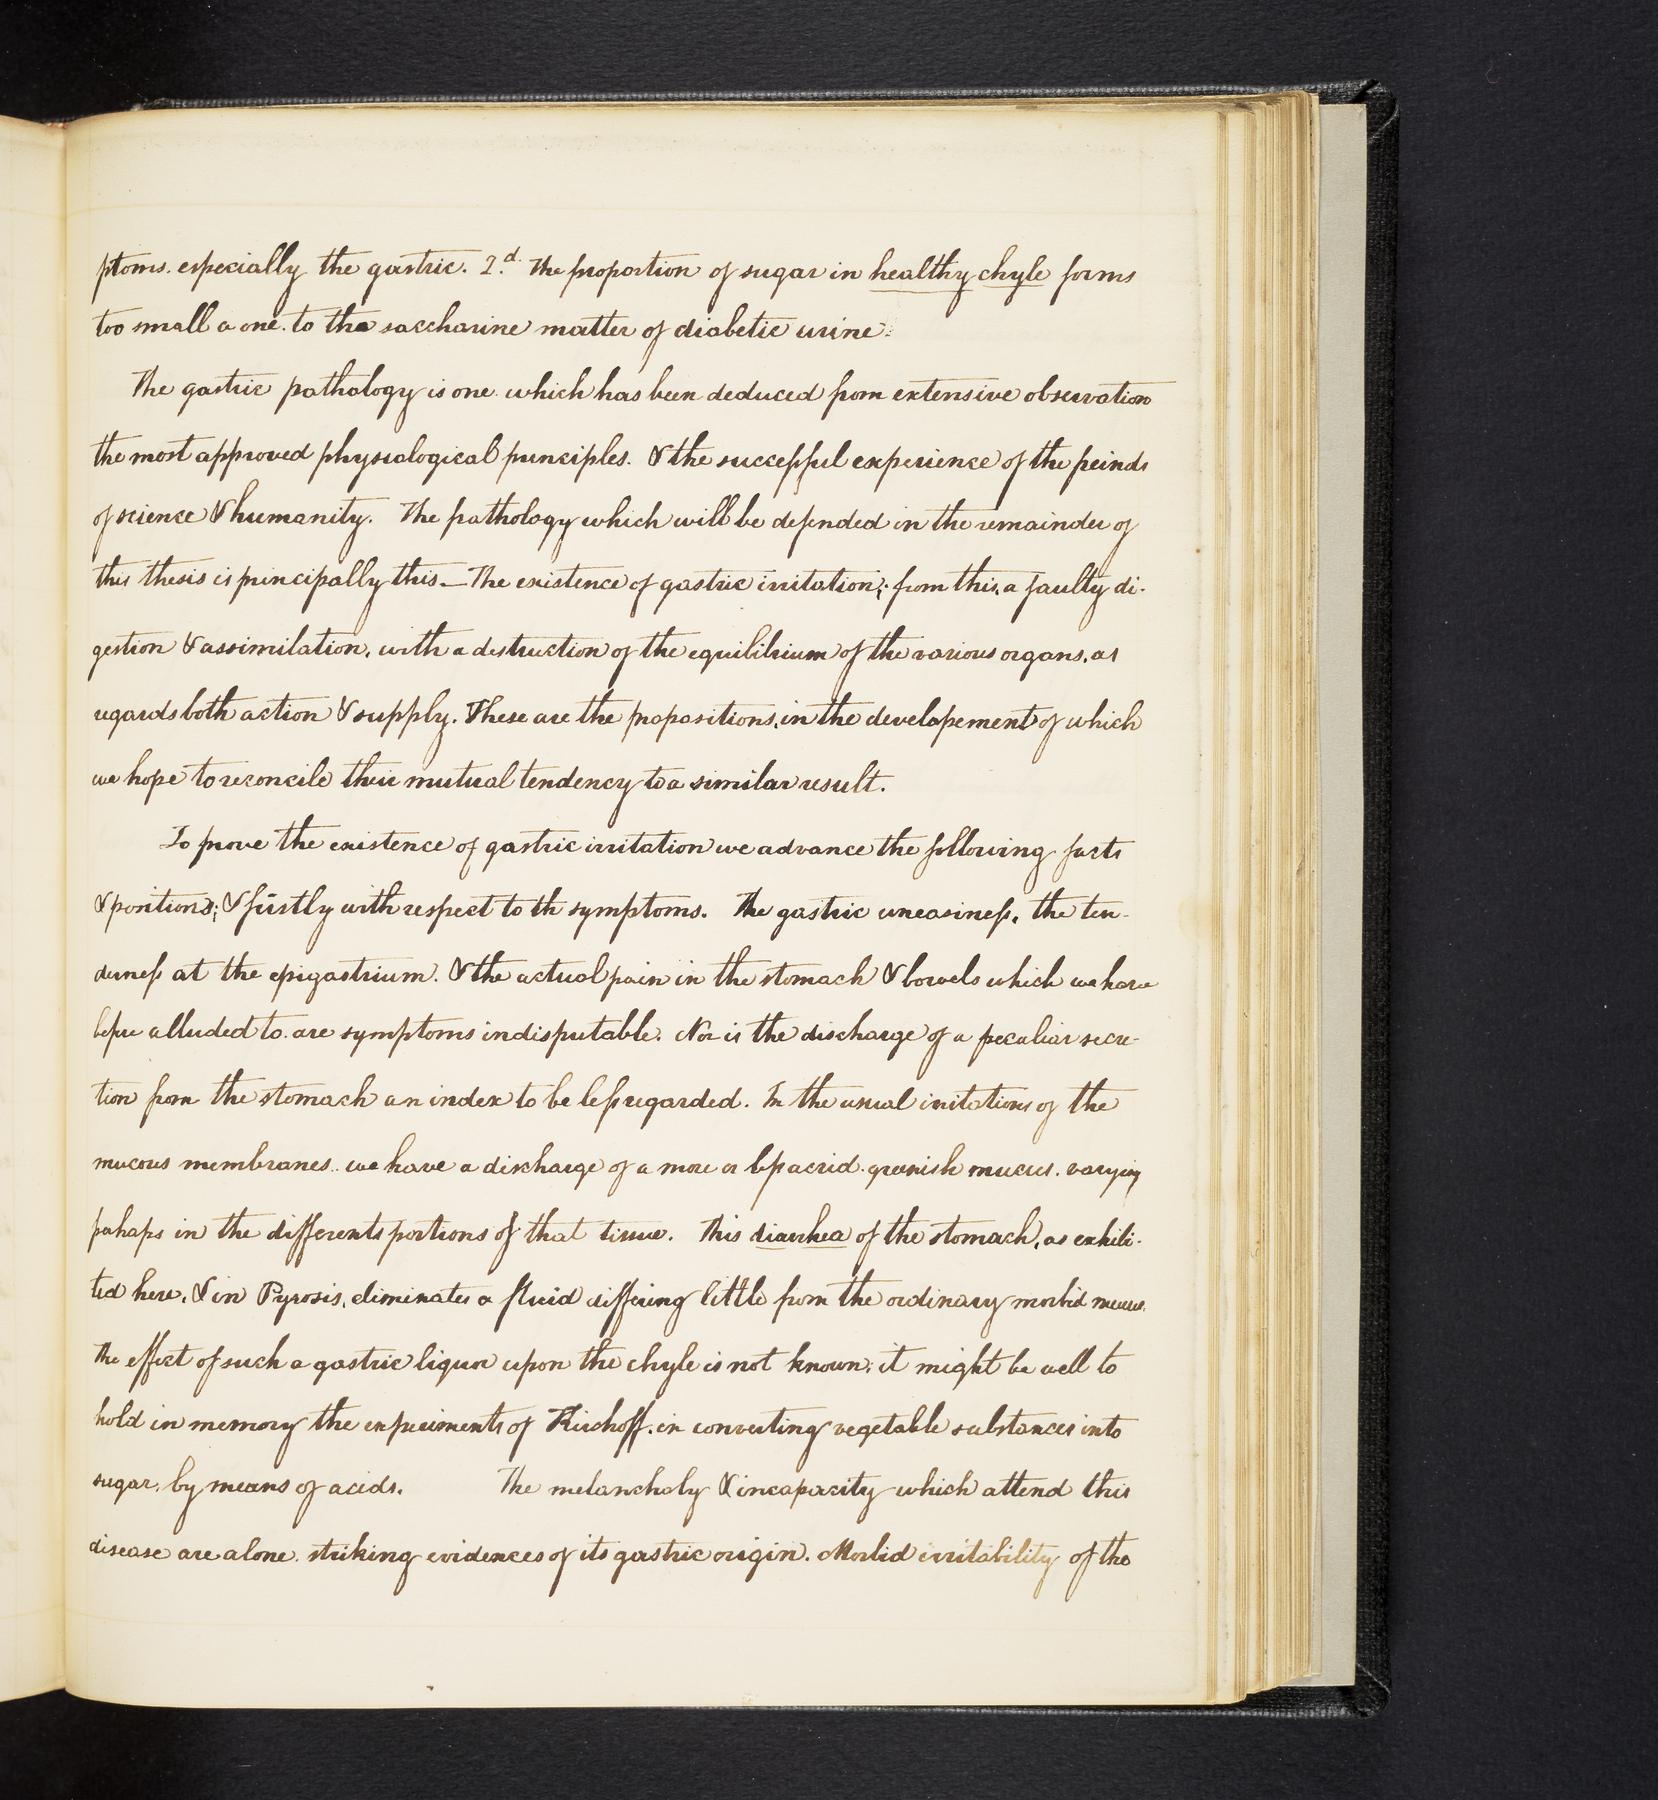 ptoms. especially the gastric. 2.d The proportion of sugar in healthy chyle forms
too small a one. to the saccharine matter of diabetic urine.
The gastric pathology is one which has been deduced from extensive observation
the most approved physiological principles. & the successful experience of the friends
of science & humanity. The pathology which will be defended in the remainder of
this thesis is principally this — The existence of gastric irritation; from this, a faulty di-
gestion & assimilation, with a destruction of the equilibrium of the various organs, as
regards both action & supply. These are the propositions, in the developement of which
we hope to reconcile their mutual tendency to a similar result.
To prove the existence of gastric irritation we advance the following facts
& positions; & firstly with respect to th symptoms. The gastric uneasiness, the ten-
derness at the epigastrium. & the actual pain in the stomach & bowels which we have
before alluded to. are symptoms indisputable. Nor is the discharge of a peculiar secre-
tion from the stomach an index to be less regarded. In the usual irritations of the
mucous membranes. we have a discharge of a more or less acrid. greenish mucus. varying
perhaps in the differents portions of that tissue. This diarrhea of the stomach, as exhibi-
ted here, & in Pyrosis, eliminates a fluid differing little from the ordinary morbid mucus.
The effect of such a gastric liquor upon the chyle is not known; it might be well to
hold in memory the experiments of Kirchoff. in converting vegetable substances into
sugar. by means of acids. The melancholy & incapacity which attend this
disease are alone. striking evidences of its gastric origin. Morbid irritability of the